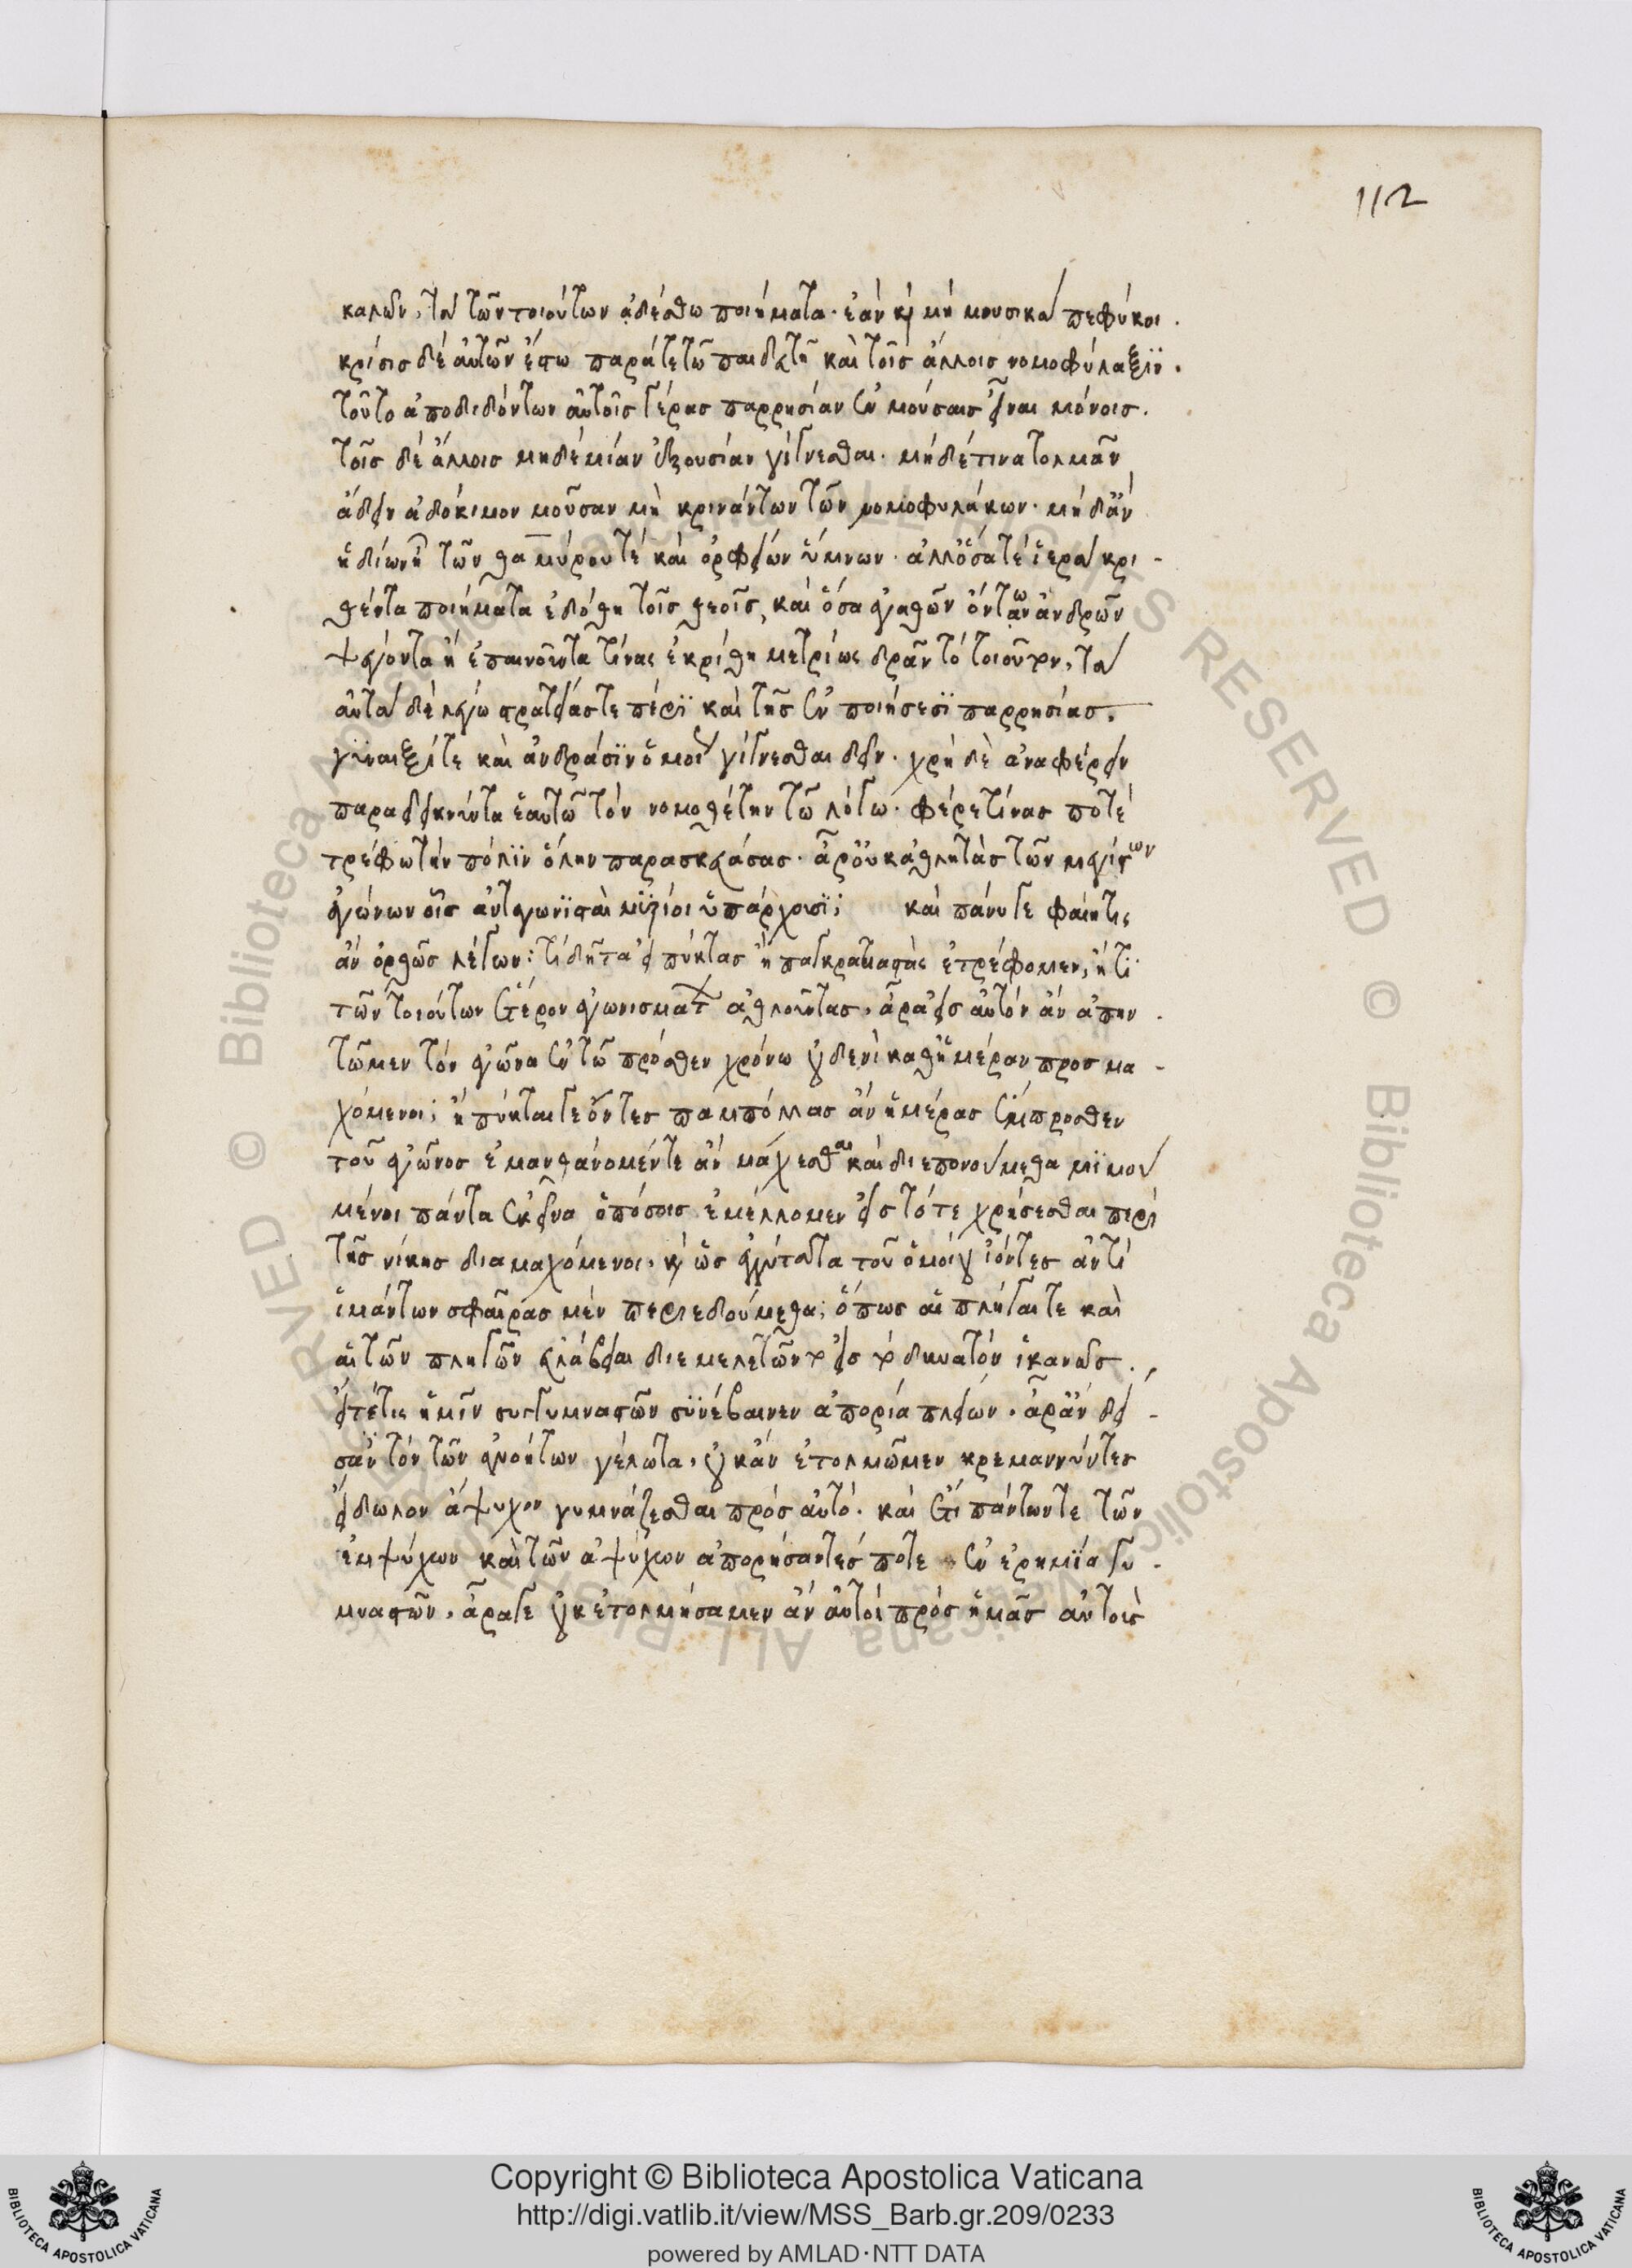 112
καλῶν, τὰ τῶν τοιούτων ἀδέσθω ποιήματα· ἐὰν καὶ μὴ μουσικὰ πεφύκοι.
κρίσις δὲ αὐτῶν ἔστω παρά τε τῷ παιδευτῇ καὶ τοῖς ἄλλοις νομοφύλαξιν.
τοῦτο ἀποδιδόντων αὐτοῖς γέρας παρρησίαν ἐν μούσαις εἶναι μόνοις.
τοῖς δὲ ἄλλοις μηδεμίαν ἐξουσίαν γίγνεσθαι. μηδέ τινα τολμᾶν
ἄδειν ἀδόκιμον μοῦσαν μὴ κρινάντων τῶν νομοφυλάκων. μηδ' ἂν
ἡδίων ᾖ τῶν θαμύρου τε καὶ ὀρφείων ὕμνων. ἀλλ' ὅσα τε ἱερὰ κρι-
θέντα ποιήματα ἐδόθη τοῖς θεοῖς, καὶ ὅσα ἀγαθῶν ὄντων ἀνδρῶν
ψέγοντα ἢ ἐπαινοῦντα τίνας ἐκρίθη μετρίως δρᾶν τὸ τοιοῦτον, τὰ
αὐτὰ δὲ λέγω στρατείας τε πέρι καὶ τῆς ἐν ποιήσεσι παρρησίας.
γυναιξί τε καὶ ἀνδράσιν ὁμοίως γίγνεσθαι δεῖν. χρὴ δὲ ἀναφέρειν
παραδεικνύντα ἑαυτῷ τὸν νομοθέτην τῷ λόγῳ. φέρε τίνας ποτὲ
τρέφω τὴν πόλιν ὅλην παρασκευάσας. ἆρ' οὐκ ἀθλητὰς τῶν μεγίστων
ἀγώνων οἷς ἀνταγωνισταὶ μυρίοι ὑπάρχουσι; καὶ πάνυ γε φαίη τις
ἂν ὀρθῶς λέγων: τί δῆτα εἰ πύκτας ἢ παγκρατιαστὰς ἐτρέφομεν, ἤ τι
τῶν τοιούτων ἕτερον ἀγωνισμάτων ἀθλοῦντας, ἆρα εἰς αὐτὸν ἂν ἀπην-
τῶμεν τὸν ἀγῶνα ἐν τῷ πρόσθεν χρόνῳ οὐδενὶ καθ' ἡμέραν προσμα-
χόμενοι; ἢ πύκται γε ὄντες παμπόλλας ἂν ἡμέρας ἔμπροσθεν
τοῦ ἀγῶνος ἐμανθάνομέν τε ἂν μάχεσθαι καὶ διεπονούμεθα μιμού
μενοι πάντα ἐκεῖνα ὁπόσοις ἐμέλλομεν εἰς τότε χρήσεσθαι περὶ
τῆς νίκης διαμαχόμενοι. καὶ ὡς ἐγγύτατα τοῦ ὁμοίου ἰόντες ἀντὶ
ἱμάντων σφαίρας μὲν περιεδούμεθα; ὅπως αἱ πληγαί τε καὶ
αἱ τῶν πληγῶν εὐλάβειαι διεμελετῶντο εἰς τὸ δυνατὸν ἱκανῶς.
εἴ τέ τις ἡμῖν συγγυμναστῶν συνέβαινεν ἀπορία πλείων. ἆρ' ἂν δεί-
σαντες τὸν τῶν ἀνοήτων γέλωτα, οὐκ ἂν ἐτολμῶμεν κρεμαννύντες
εἴδωλον ἄψυχον γυμνάζεσθαι πρὸς αὐτό. καὶ ἔτι πάντων τε τῶν
ἐμψύχων καὶ τῶν ἀψύχων ἀπορήσαντές ποτε ἐν ἐρημίᾳ γυ-
μναστῶν, ἆρά γε οὐκ ἐτολμήσαμεν ἂν αὐτοὶ πρὸς ἡμᾶς αὐτοὺς
Copyright © Biblioteca Apostolica Vaticana
http://digi.vatlib.it/view/MSS_Barb.gr.209/0233
powered by AMLAD·NTT DATA
BIBLIOTECA APOSTOLICA VATICANA
BIBLIOTECA APOSTOLICA VATICANA